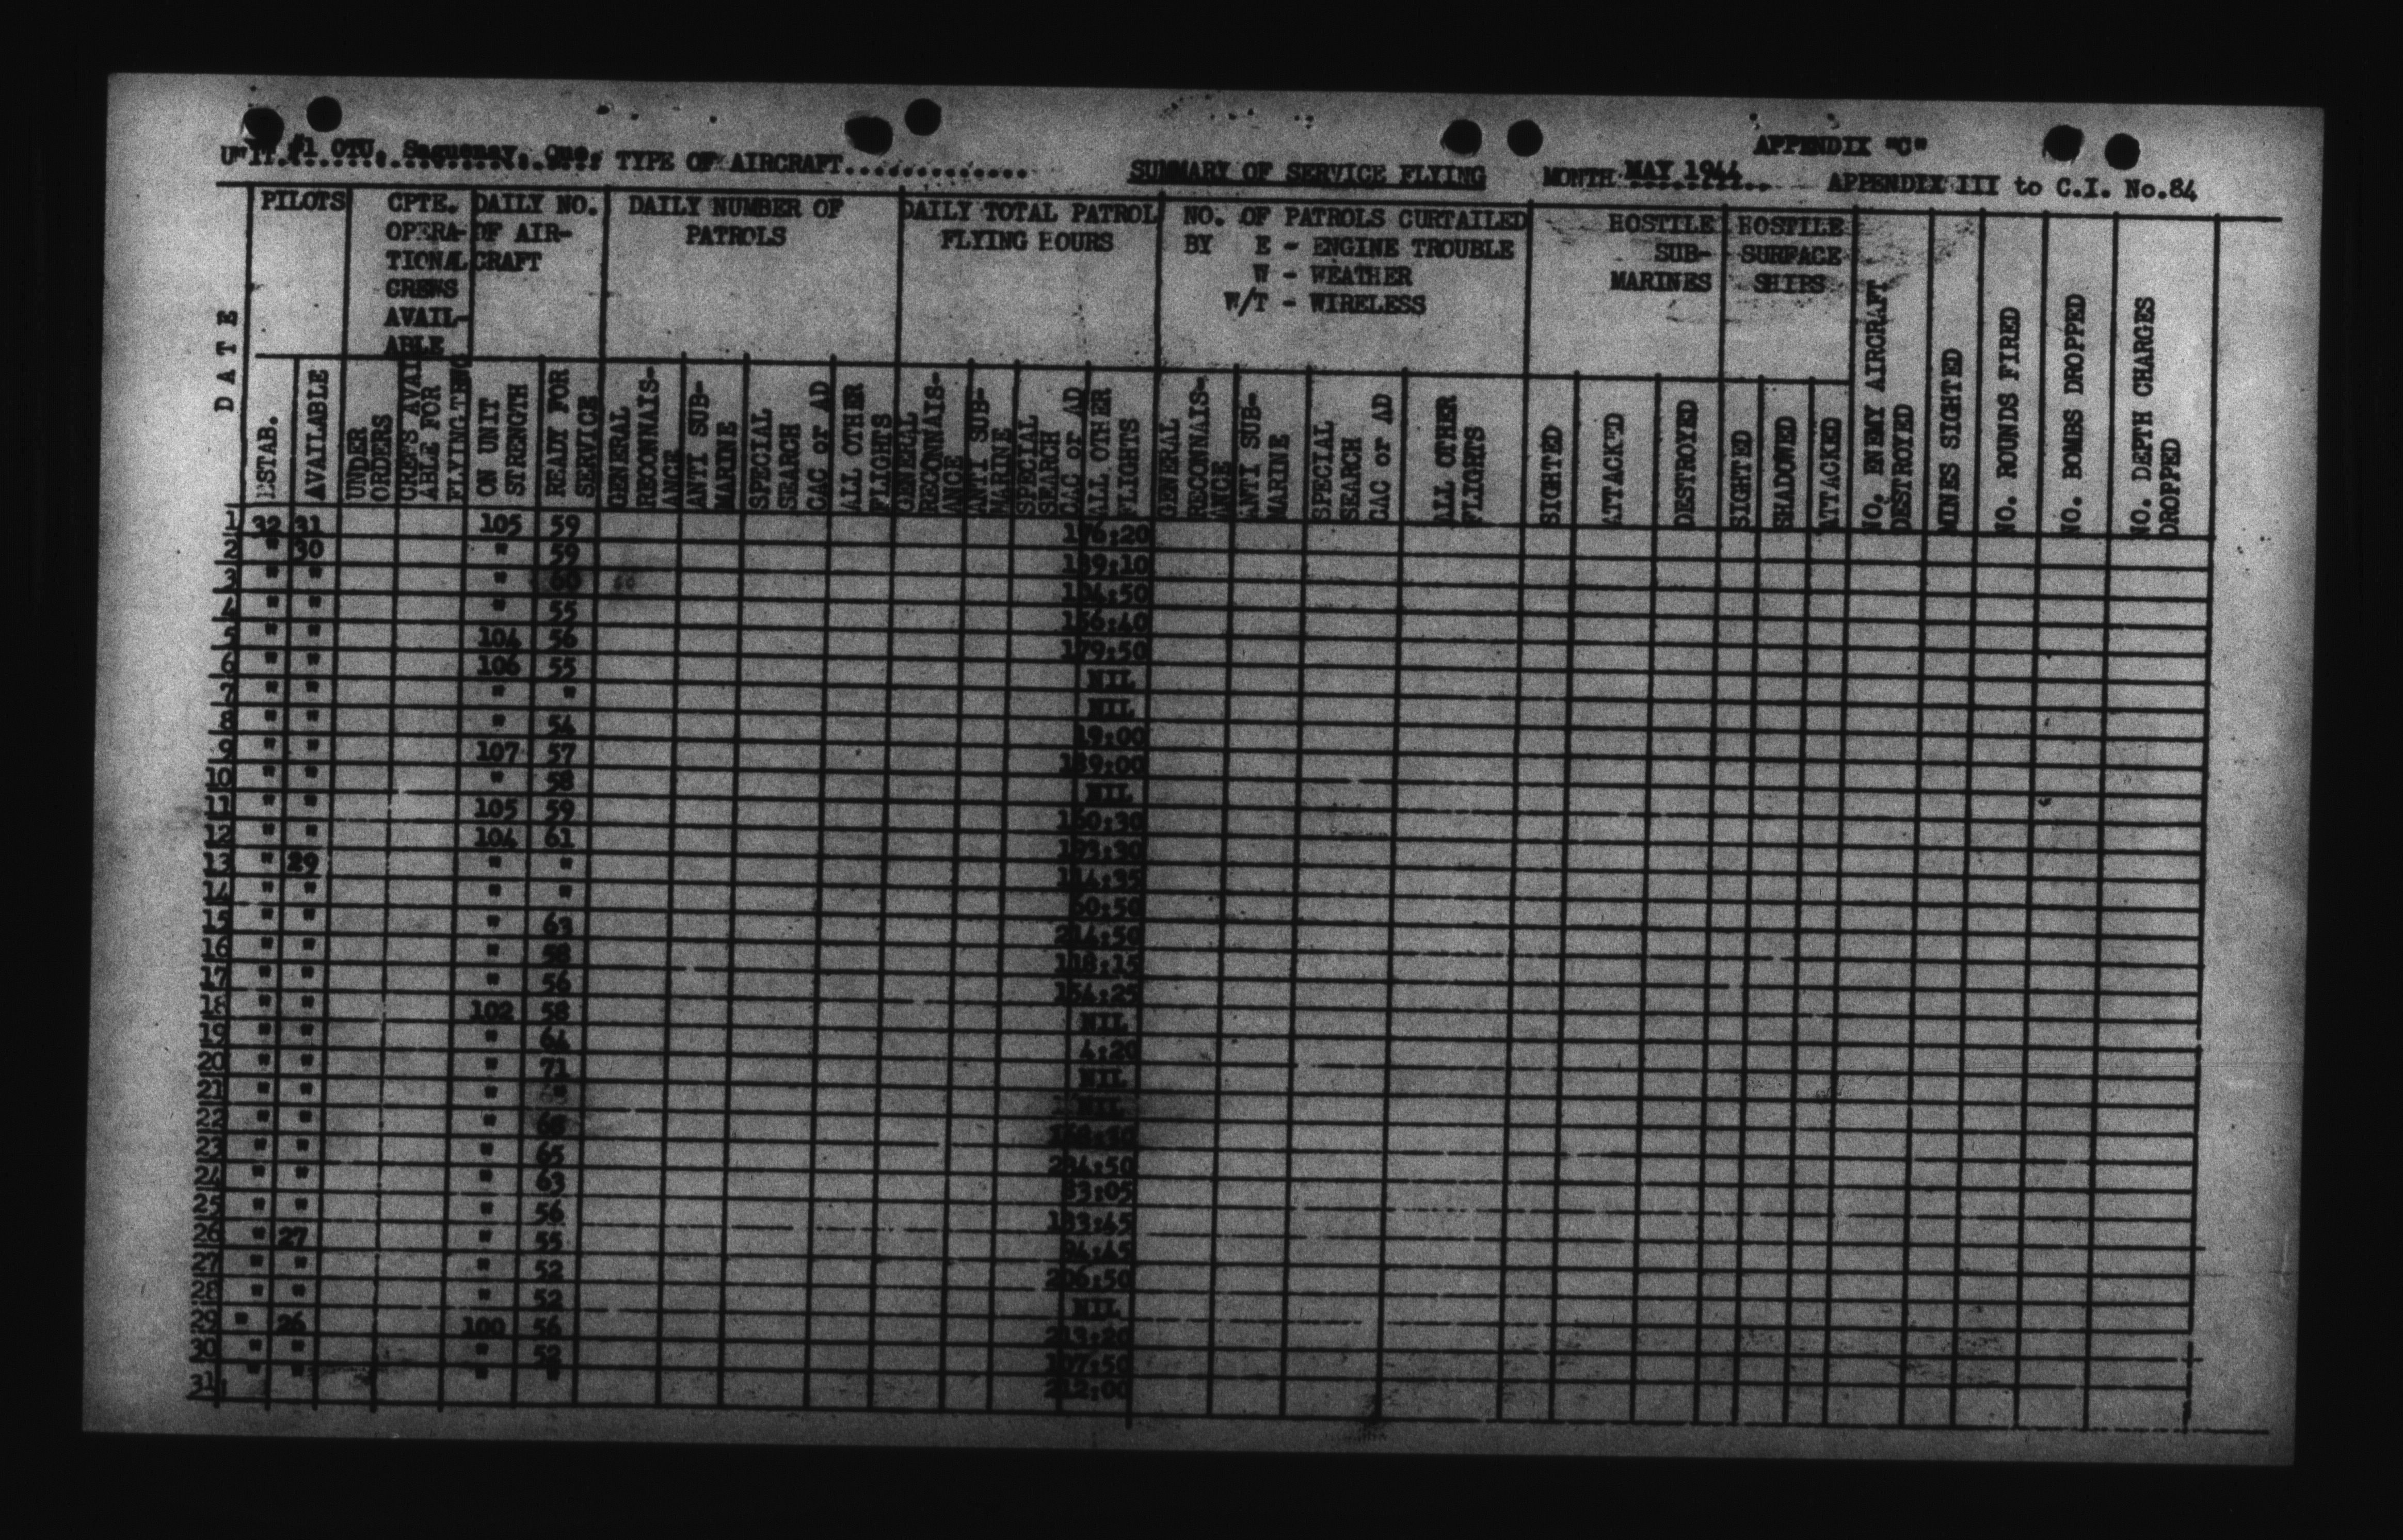 APPENDIX "C"
UNIT. #1 OTU, Saguenay, Que. TYPE OF AIRCRAFT............. SUMMARY OF SERVICE FLYING MONTH MAY 1944 APPENDIX III to C.I. No.84
DATE
PILOTS
ESTAB.
AVAILABLE
CPTE.
OPERA-
TIONAL
CREWS
AVAIL-
ABLE
UNDER
ORDERS
ABLE FOR
DAILY NO.
OF AIR-
CRAFT
ON UNIT
STRENGTH
READY FOR
SERVICE
DAILY NUMBER OF
PATROLS
GENERAL
RECONNAIS-
ANCE
ANTI SUB-
MARINE
SPECIAL
SEARCH
CAC or AD
ALL OTHER
FLIGHTS
DAILY TOTAL PATROL
FLYING HOURS
GENERAL
RECONNAIS-
ANCE
ANTI SUB-
MARINE
SPECIAL
SEARCH
CAC or AD
ALL OTHER
FLIGHTS
NO. OF PATROLS CURTAILED
BY E - ENGINE TROUBLE
W - WEATHER
W/T - WIRELESS
GENERAL
RECONNAIS-
ANCE
ANTI SUB-
MARINE
SPECIAL
SEARCH
CAC or AD
ALL OTHER
FLIGHTS
HOSTILE
SUB-
MARINES
SIGHTED
ATTACKED
DESTROYED
HOSTILE
SURFACE
SHIPS
SIGHTED
SHADOWED
ATTACKED
NO. ENEMY AIRCRAFT
DESTROYED
MINES SIGHTED
NO. ROUNDS FIRED
NO. BOMBS DROPPED
NO. DEPTH CHARGES
DROPPED
1 32 31 105 59 176:20
2 " 30 " 59 189:10
3 " " " 60 60 104:50
4 " " " 55 156:40
5 " " 104 56 179:50
6 " " 106 55 NIL
7 " " " " NIL
8 " " " 54 19:00
9 " " 107 57 189:00
10 " " " 58 NIL
11 " " 105 59 160:30
12 " " 104 61 193:30
13 " 29 " " 114:35
14 " " " " 60:50
15 " " " 63 214:50
16 " " " 58 118:15
17 " " " 56 154:25
18 " " 102 58 NIL
19 " " " 64 4:20
20 " " " 71 NIL
21 " " " " NIL
22 " " "
23 " " " 65 204:50
24 " " " 63 83:05
25 " " " 56 183:45
26 " 27 " 55 94:45
27 " " " 52 206:50
28 " " " 52 NIL
29 " 26 100 56 213:20
30 " " " 52 107:50
31 " " " " 212:00